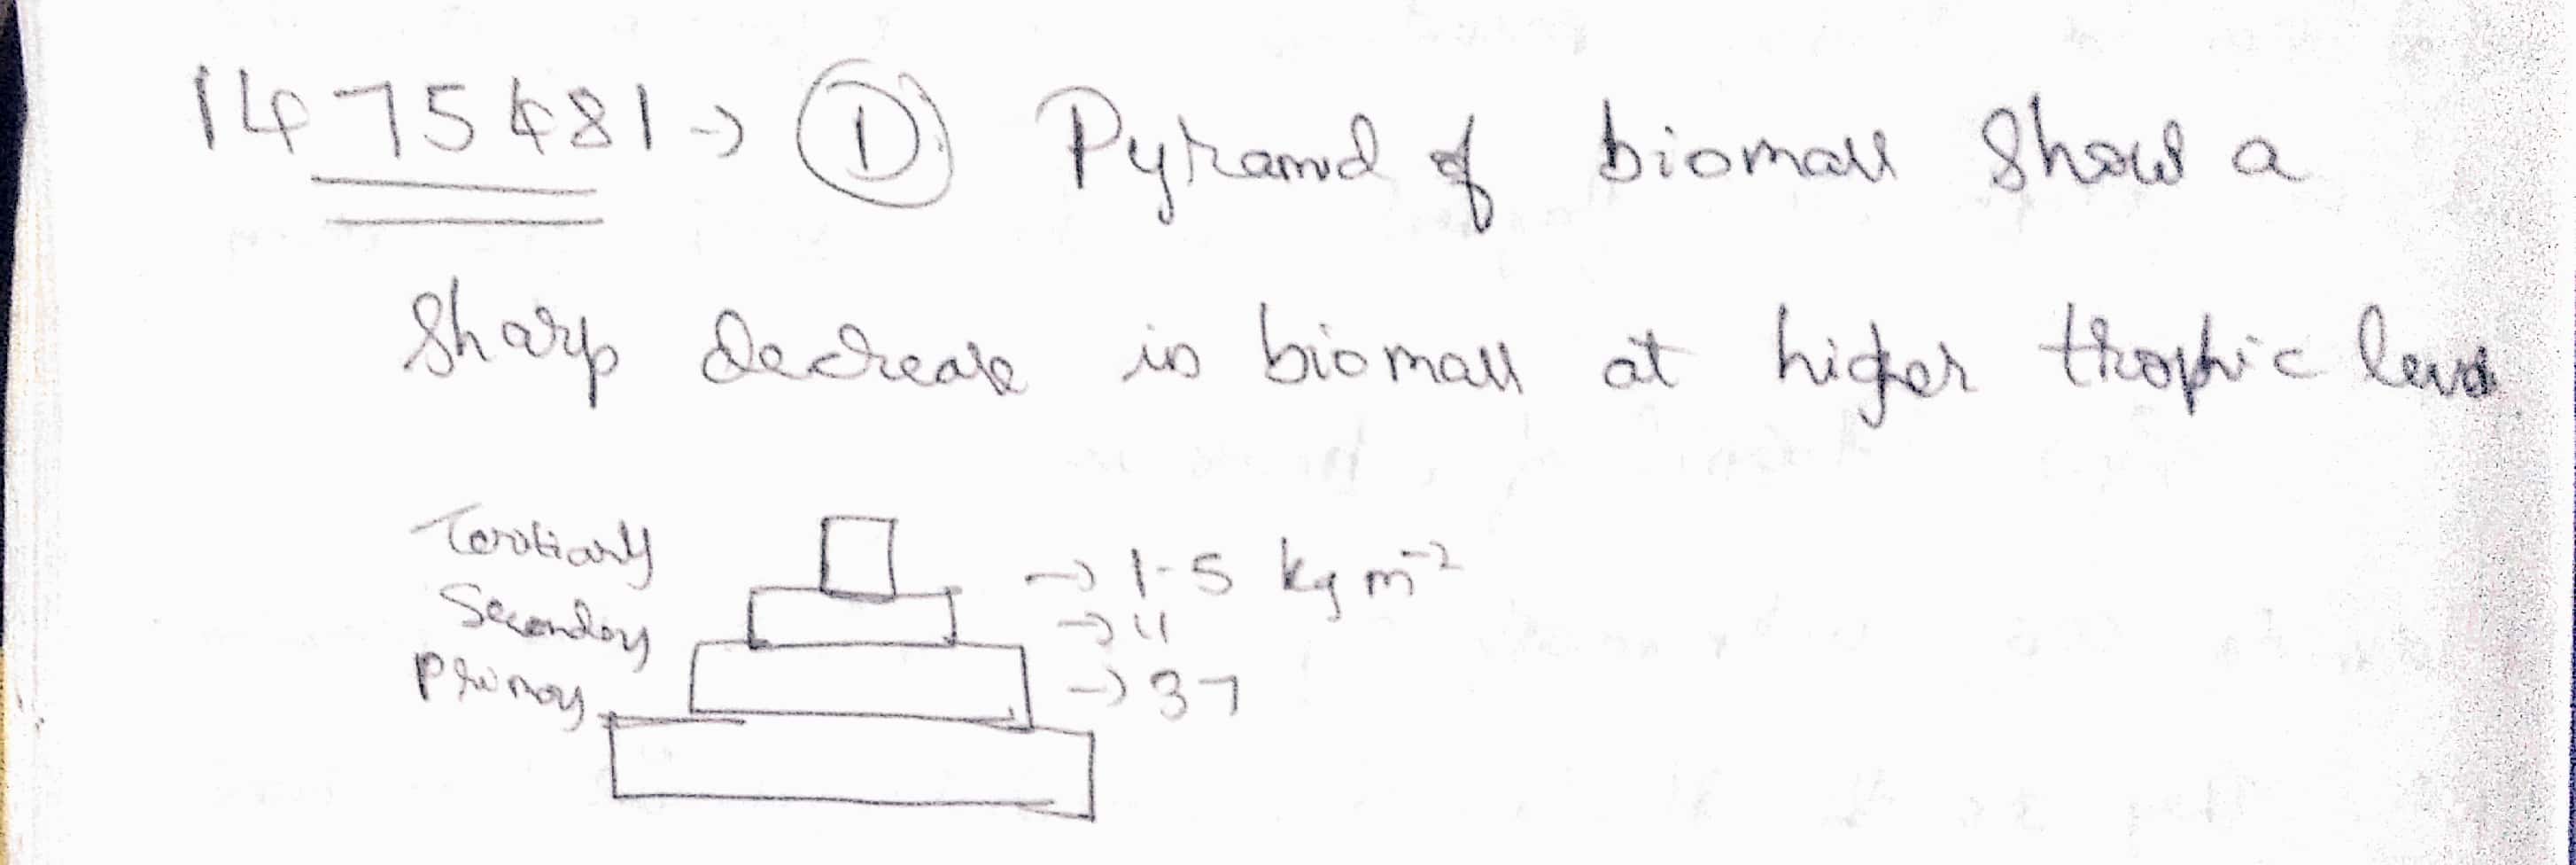 1475481 → D Pyramid of biomass shows a
sharp decrease in biomass at higher trophic level
Teritiary → 1.5 kg m⁻²
Secondary → 11
Primary → 37